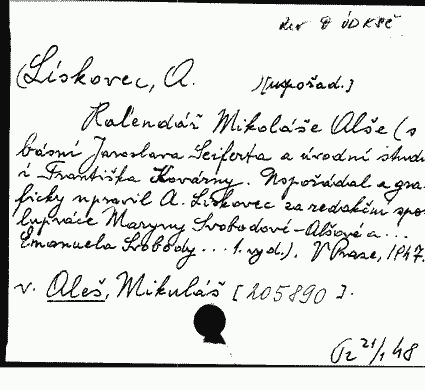 rev ÚDKSČ
(Lískovec, A. )[uspořad.]
Kalendář Mikoláše Alše (s
básní Jaroslava Seiferta a úvodní studi
í Františka Kovárny. Uspořádal a gra-
ficky upravil A. Lískovec za redakční spo-
lupráce Maryny Svobodové-Alšové a...
Emanuela Svobody ... 1. vyd.). V Praze, 1947.
v. Aleš, Mikuláš [205890].
21/1 48